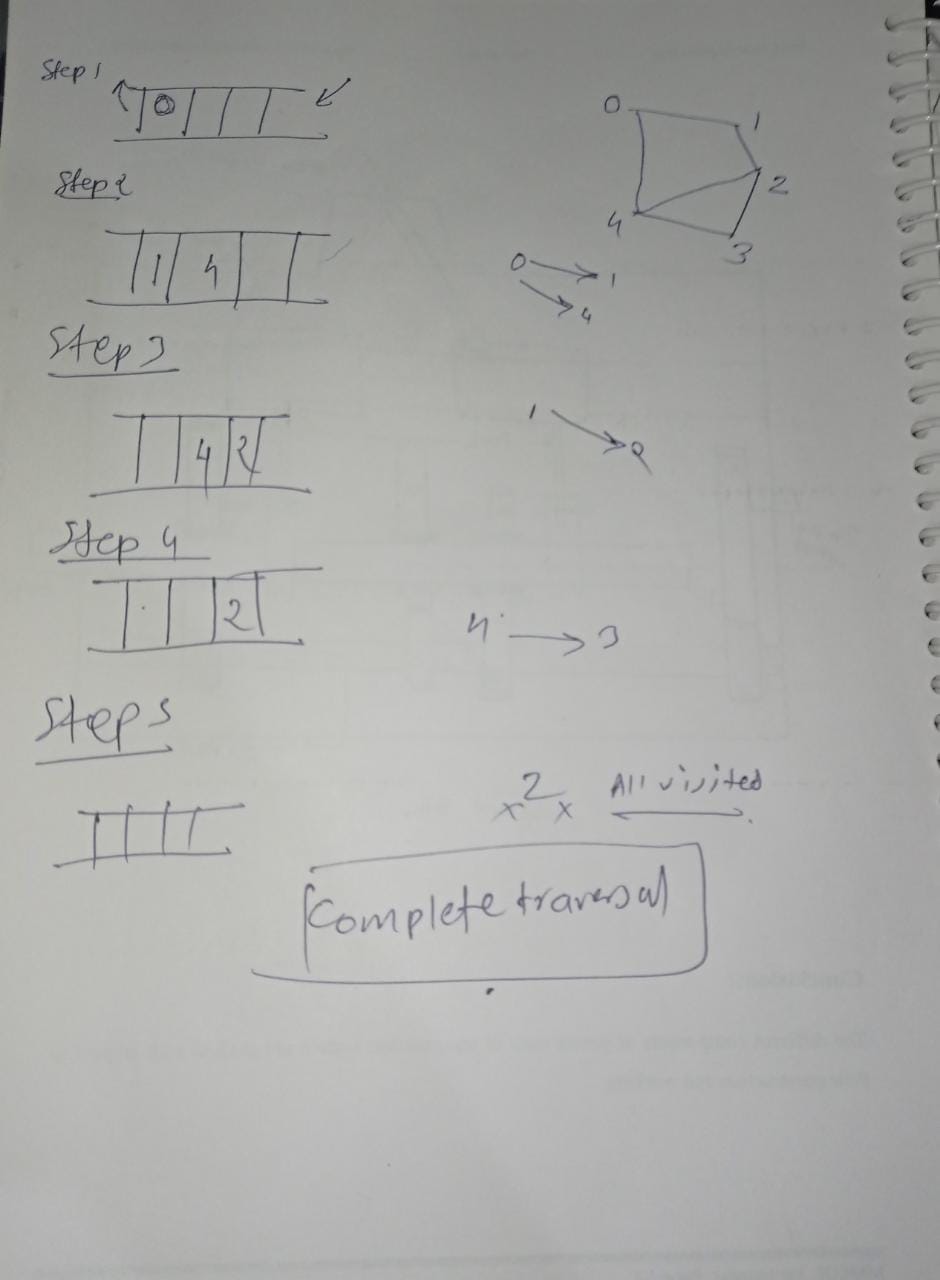 Step 1
0
0
1
2
4
3
Step 2
1 4
0 → 1
→ 4
Step 3
4 2
1 → 2
Step 4
2
4 → 3
Step 5
x 2 x All visited
Complete traversal